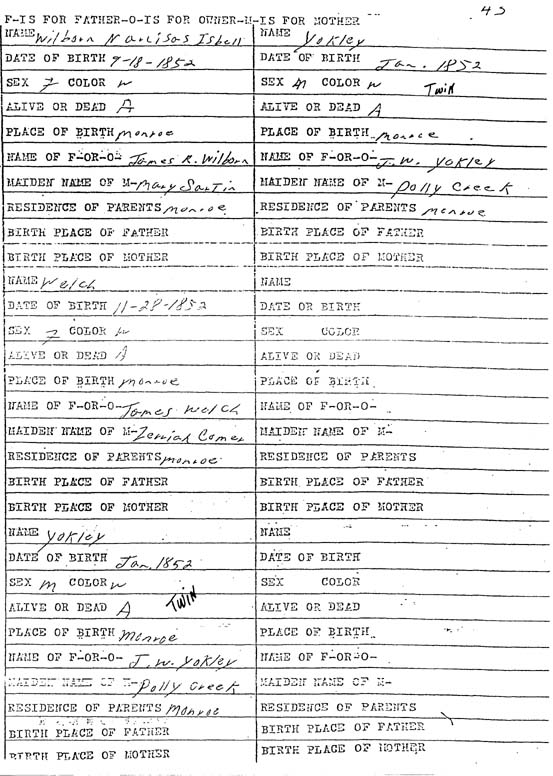 F-IS FOR FATHER-O-IS FOR OWNER-M-IS FOR MOTHER
NAME Wilborn Narcisos Isbell
DATE OF BIRTH 9-18-1852
SEX F COLOR w
ALIVE OR DEAD A
PLACE OF BIRTH monroe
NAME OF F-OR-O- James R. Wilborn
MAIDEN NAME OF M- Mary Sartin
RESIDENCE OF PARENTS monroe
BIRTH PLACE OF FATHER
BIRTH PLACE OF MOTHER
NAME Welch
DATE OF BIRTH 11-28-1852
SEX F COLOR w
ALIVE OR DEAD A
PLACE OF BIRTH monroe
NAME OF F-OR-O- James Welch
MAIDEN NAME OF M- Zeniah Comer
RESIDENCE OF PARENTS monroe
BIRTH PLACE OF FATHER
BIRTH PLACE OF MOTHER
NAME Yokley
DATE OF BIRTH Jan. 1852
SEX m COLOR w
ALIVE OR DEAD A TWIN
PLACE OF BIRTH Monroe
NAME OF F-OR-O- J. W. Yokley
MAIDEN NAME OF M- Polly Creek
RESIDENCE OF PARENTS Monroe
BIRTH PLACE OF FATHER
BIRTH PLACE OF MOTHER
NAME Yokley
DATE OF BIRTH Jan. 1852
SEX m COLOR w TWIN
ALIVE OR DEAD A
PLACE OF BIRTH monroe
NAME OF F-OR-O- J. W. Yokley
MAIDEN NAME OF M- Polly Creek
RESIDENCE OF PARENTS monroe
BIRTH PLACE OF FATHER
BIRTH PLACE OF MOTHER
NAME
DATE OR BIRTH
SEX COLOR
ALIVE OR DEAD
PLACE OF BIRTH
NAME OF F-OR-O-
MAIDEN NAME OF M-
RESIDENCE OF PARENTS
BIRTH PLACE OF FATHER
BIRTH PLACE OF MOTHER
NAME
DATE OF BIRTH
SEX COLOR
ALIVE OR DEAD
PLACE OF BIRTH
NAME OF F-OR-O-
MAIDEN NAME OF M-
RESIDENCE OF PARENTS
BIRTH PLACE OF FATHER
BIRTH PLACE OF MOTHER